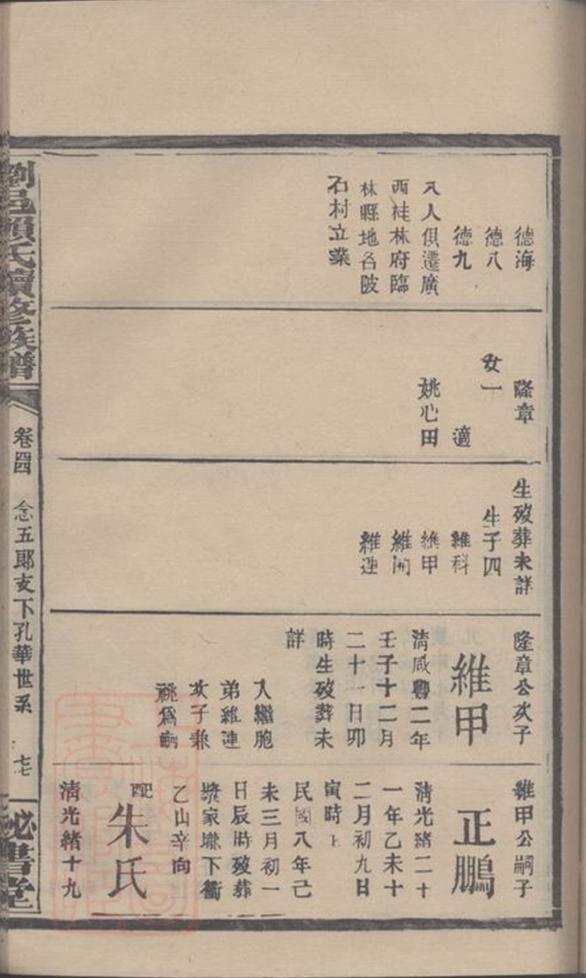 德海
德八
德九
八人俱遷廣
西桂林府臨
林縣地名陂
石村立業
隆章
女一
適
姚心田
生歿葬未詳
生子四
維科
維甲
維開
維連
隆章公次子
維甲
清咸豐二年
壬子十二月
二十一日卯
時生歿葬未
詳
人繼胞
弟維連
次子兼
祧爲嗣
維甲公嗣子
正鵬
清光緒二十
一年乙未十
二月初九日
寅時
民國八年己
未三月初一
日辰時歿葬
漿家壠下衝
乙山辛向
配
朱氏
清光緒十九
劉邑賴氏續修族譜
卷四
念五郎支下孔華世系
祕書堂